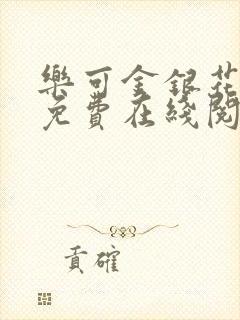 樂可金銀花
免費在綫閱
貢確